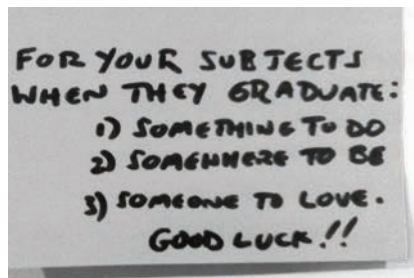 FOR YOUR SUBJECTS
WHEN THEY GRADUATE:
1) SOMETHING TO DO
2) SOMEWHERE TO BE
3) SOMEONE TO LOVE.
GOOD LUCK!!